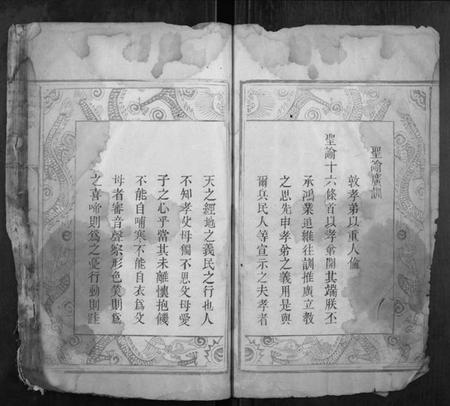 聖諭廣訓
敦孝弟以重人倫
聖諭十六條首以孝弟開其端朕丕
承鴻業追維往訓推廣立教
之思先申孝弟之義用是與
爾兵民人等宣示之夫孝者
天之經地之義民之行也人
不知孝父母獨不思父母愛
子之心乎當其未離懷抱饑
不能自哺寒不能自衣為父
母者審音聲察形色笑則為
之喜啼則為之憂行動則跬